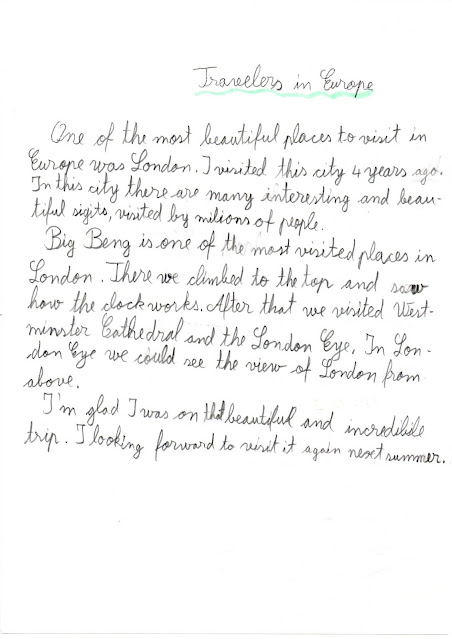 Travelers in Europe
One of the most beautiful places to visit in
Europe was London. I visited this city 4 years ago.
In this city there are many interesting and beau-
tiful sigits, visited by milions of people.
Big Beng is one of the most visited places in
London. There we climbed to the top and saw
how the clock works. After that we visited West-
minster Cathedral and the London Eye. In Lon-
don Eye we could see the view of London from
above.
I'm glad I was on that beautiful and incredibile
trip. I looking forward to visit it again next summer.